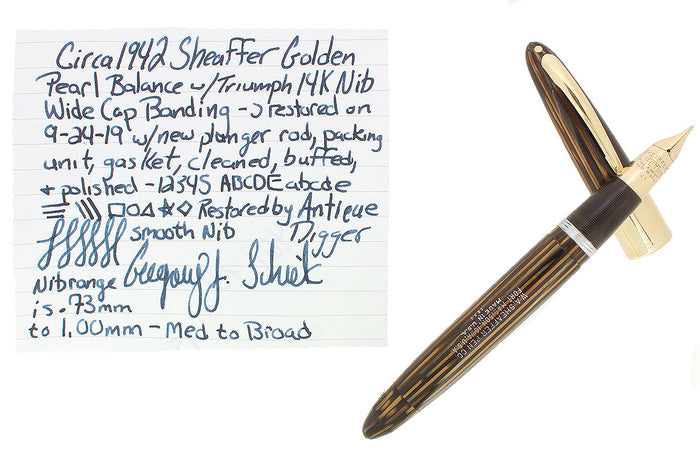 Circa 1942 Sheaffer Golden
Pearl Balance w/Triumph 14K Nib
Wide Cap Banding - restored on
9-24-19 w/new plunger rod, packing
unit, gasket, cleaned, buffed,
+ polished - 12345 ABCDE abcde
Restored by Antique
smooth Nib Digger
Gregory J. Schiek
Nib range
is .73mm
to 1.00mm - Med to Broad
W.A. SHEAFFER PEN CO.
FORT MADISON, IOWA, U.S.A.
MADE IN U.S.A.